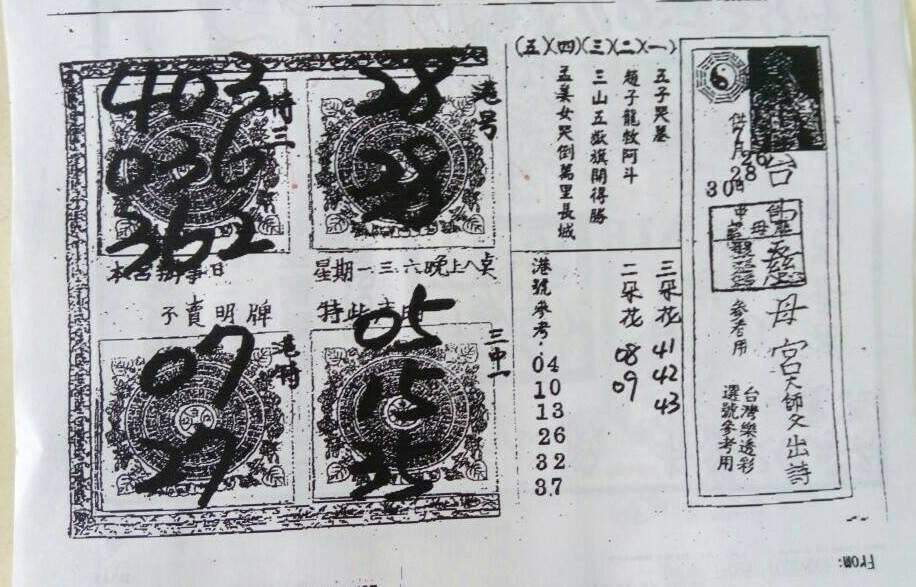 (五)(四)(三)(二)(一)
五子哭墓
趙子龍救阿斗
三山五嶽旗開得勝
孟姜女哭倒萬里長城
供
7月
26
28
30日
台
母宮大師父出詩
參考用
台灣樂透彩
選號參考用
403
036
362
特三
28
23
港号
星期一三六晚上八点
本宮辦事日
不賣明牌
特此
07
27
港特
05
15
35
三中一
三朵花
41
42
43
二朵花
08
09
港號參考.
04
10
13
26
32
37
FROM: